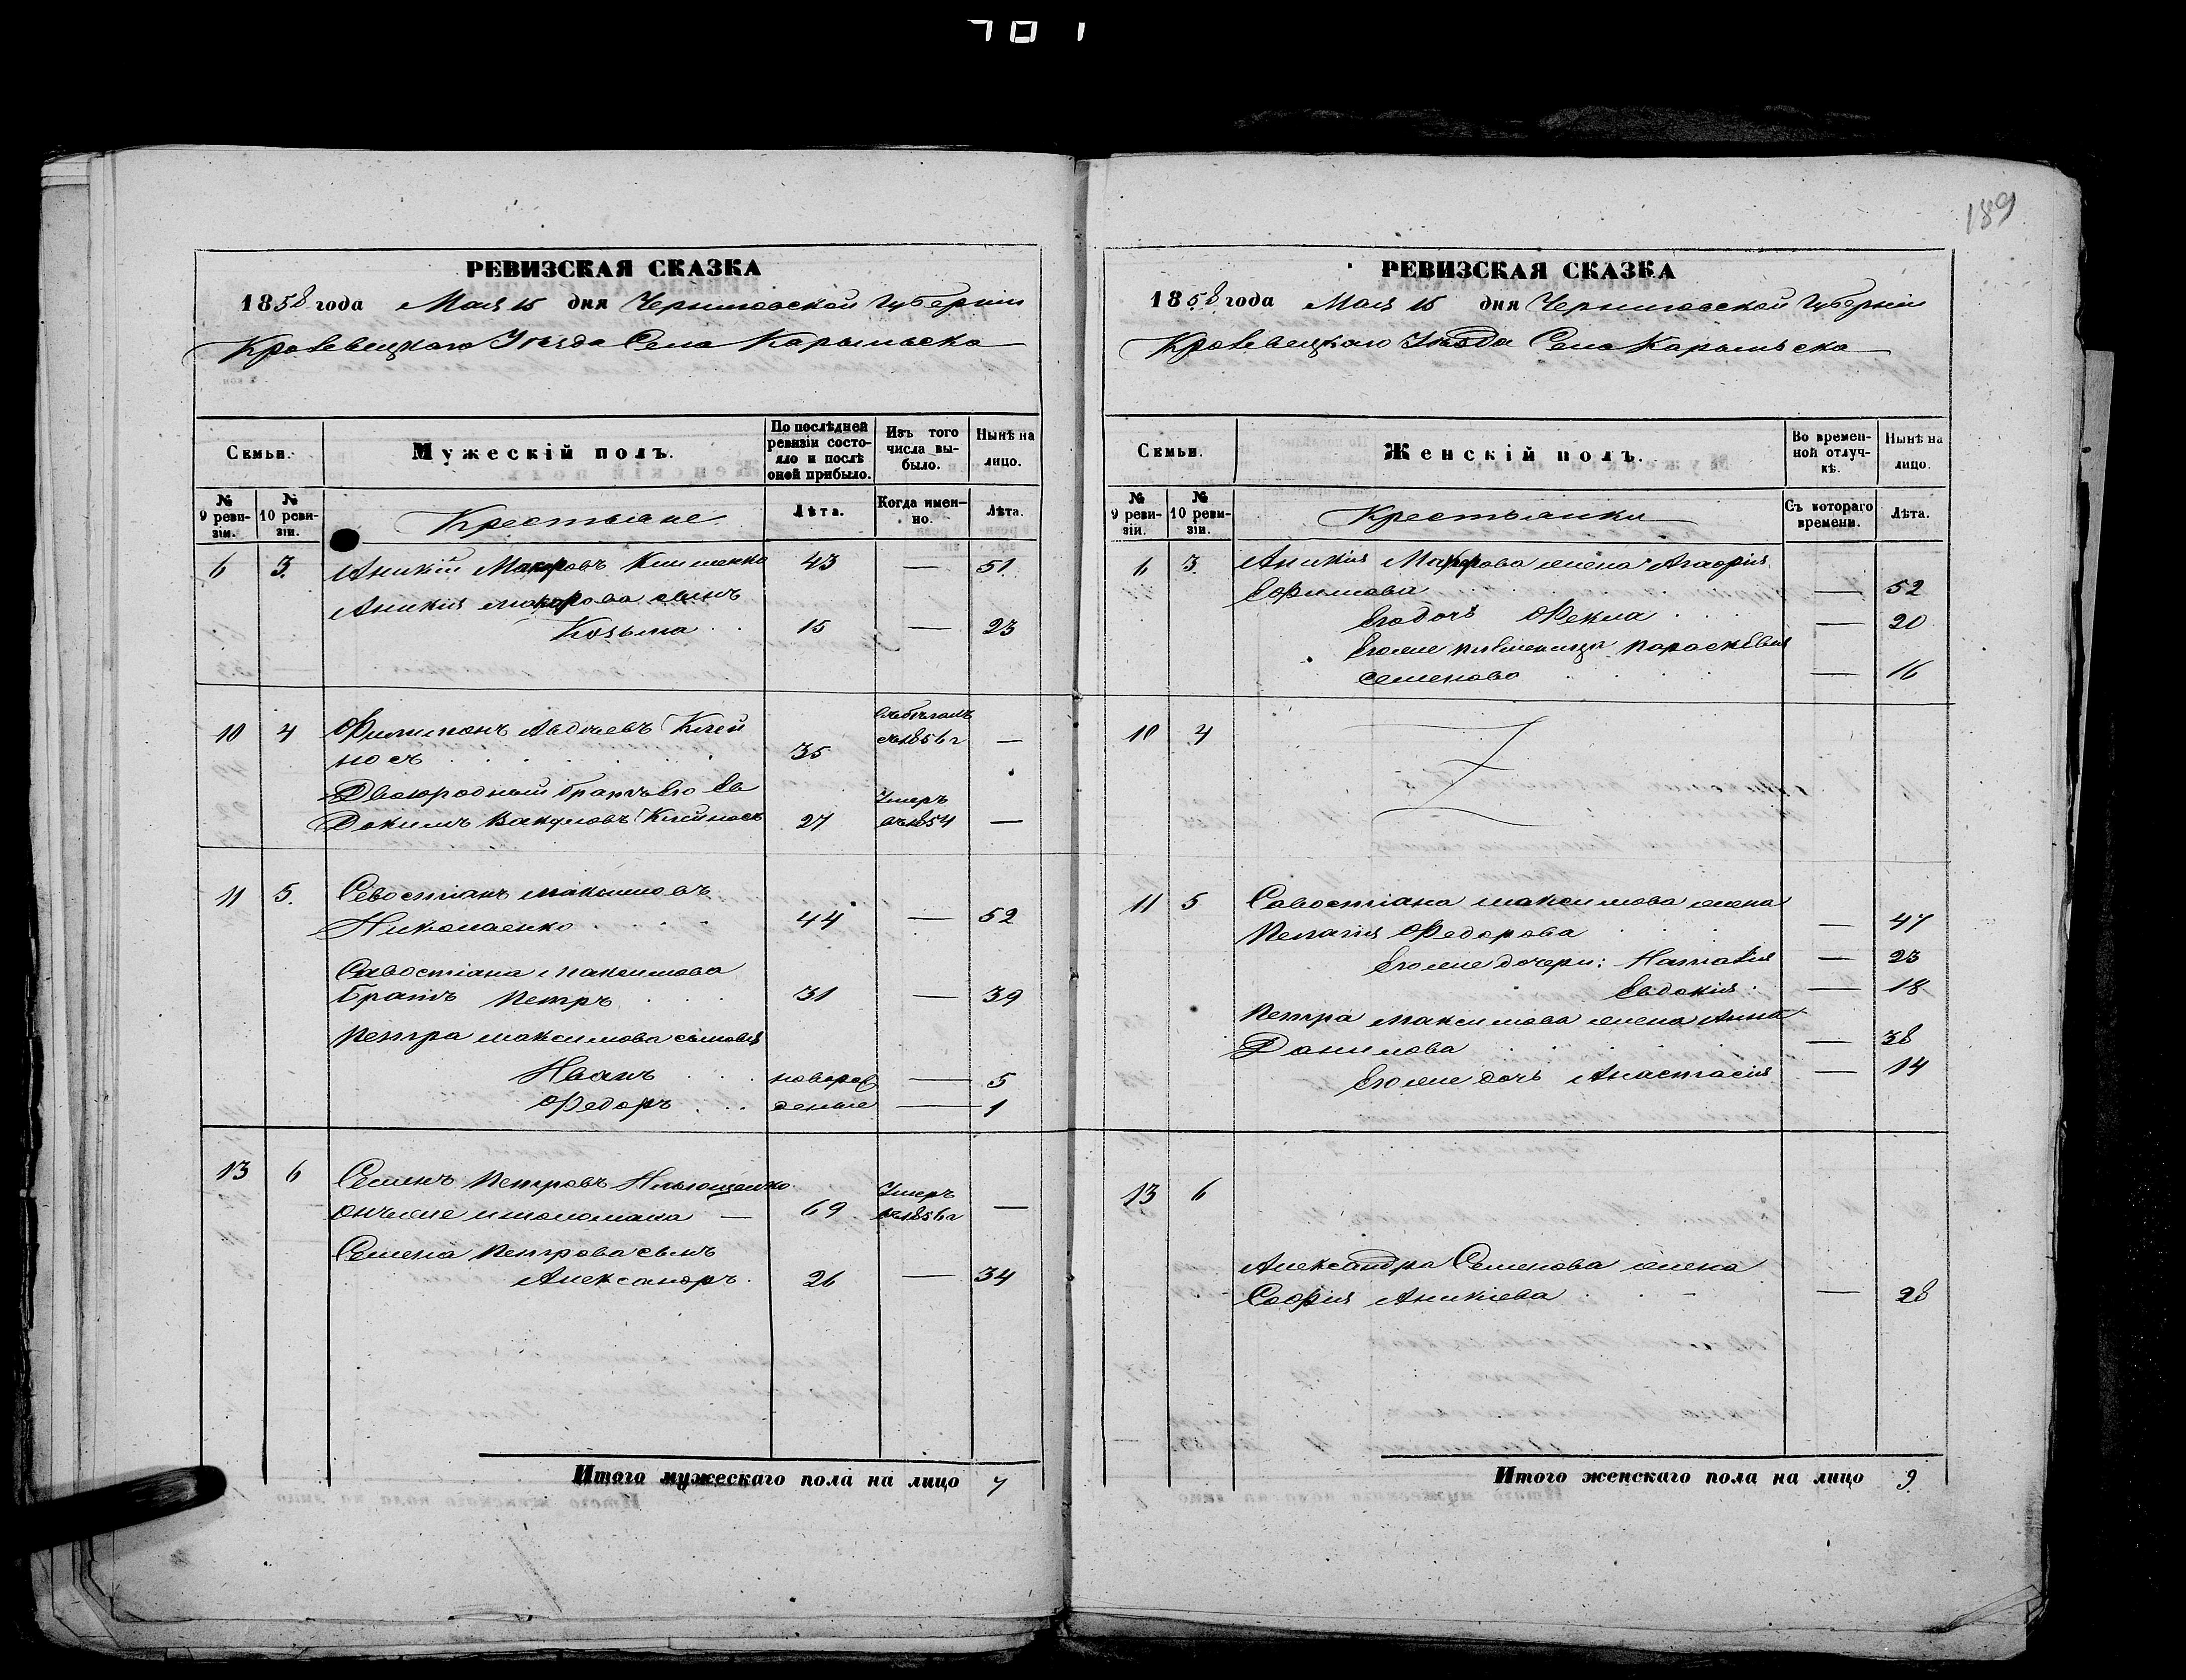 701
189
РЕВИЗСКАЯ СКАЗКА
1858 года Мая 15 дня Черниговской Губерніи
Кролевецкаго Уѣзда Села Карыльска
Семьи.
Мужескій полъ.
По послѣдней ревизіи состояло и послѣ оной прибыло.
Изъ того числа выбыло.
Нынѣ на лицо.
№ 9 ревизіи.
№ 10 ревизіи.
Крестьяне
Лѣта.
Когда именно.
Лѣта.
6 3. Аникій Макаровъ Клименко 43 — 51
Аникія Макарова сынъ
Козьма 15 — 23
10 4 Филимонъ Авдѣевъ Клей
носъ 35 въ 1856 г —
Двоюродный братъ его Ев
докимъ Вакуловъ Клейносъ 27 Умеръ въ 1854 —
11 5. Севостіанъ Максимовъ
Николаенко 44 — 52
Савостіана Максимова
братъ Петръ 31 — 39
Петра Максимова сыновья
Иванъ новорож — 5
Федоръ денные — 1
13 6 Семенъ Петровъ
онъже 69 Умеръ въ 1856 г —
Семена Петрова сынъ
Александръ 26 — 34
Итого мужескаго пола на лицо 7
РЕВИЗСКАЯ СКАЗКА
1858 года Мая 15 дня Черниговской Губерніи
Кролевецкаго Уѣзда Села Карыльска
Семьи.
Женскій полъ.
Во временной отлучкѣ.
Нынѣ на лицо.
№ 9 ревизіи.
№ 10 ревизіи.
Крестьянки
Съ котораго времени.
Лѣта.
6 3. Аникія Макарова жена Агафія
Ефимова — 52
Его дочь Фекла — 20
Егоже племеница Параскевія
Семенова — 16
10 4
11 5 Савостіана Максимова жена
Пелагія Федорова — 47
Егоже дочери: Наталія — 23
Евдокія — 18
Петра Максимова жена Анна
Данилова — 38
Егоже дочь Анастасія — 14
13 6
Александра Семенова жена
Софія Аникіева — 28
Итого женскаго пола на лицо 9